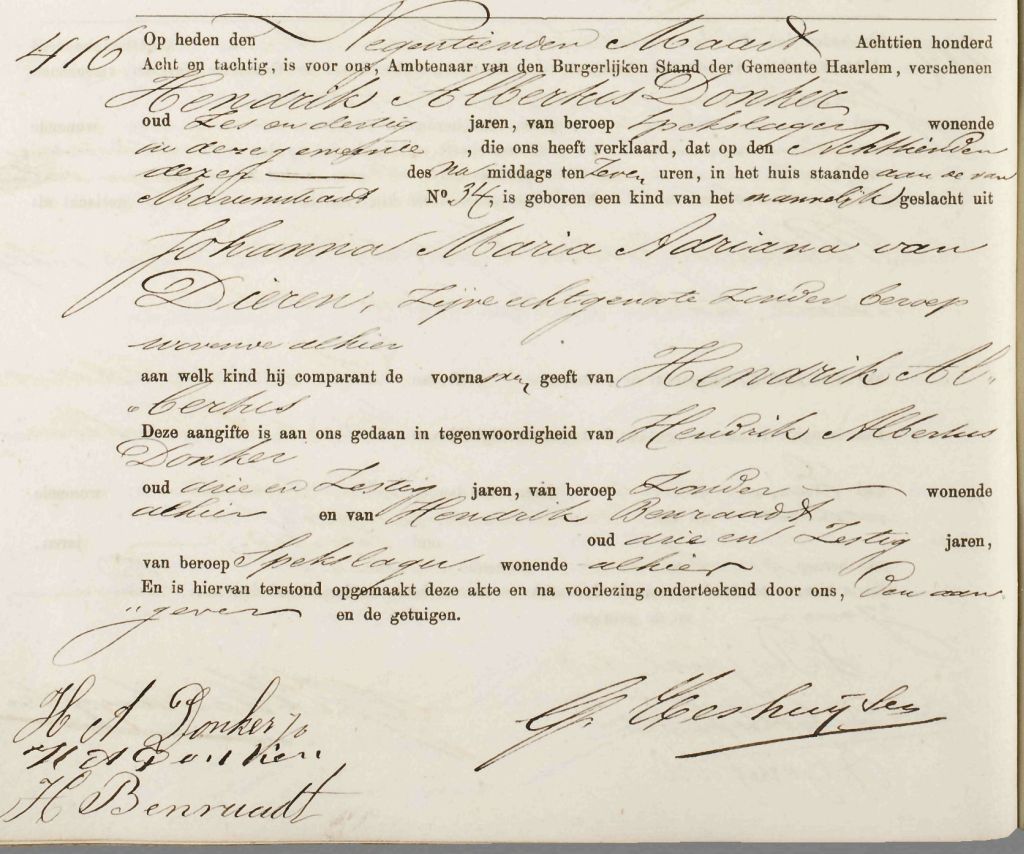 416 Op heden den Negentienden Maart Achttien honderd
Acht en tachtig, is voor ons, Ambtenaar van den Burgerlijken Stand der Gemeente Haarlem, verschenen
Hendrik Albertus Donker
oud Zes en dertig jaren, van beroep Spekslager wonende
in deze gemeente, die ons heeft verklaard, dat op den Achttienden
dezer des na middags ten Zeven uren, in het huis staande aan de van
Marumstraat No. 34, is geboren een kind van het mannelijk geslacht uit
Johanna Maria Adriana van
Dieren, Zijne echtgenoote Zonder beroep
wonende alhier
aan welk kind hij comparant de voornamen geeft van Hendrik Al„
„bertus
Deze aangifte is aan ons gedaan in tegenwoordigheid van Hendrik Albertus
Donker
oud drie en Zestig jaren, van beroep Zonder wonende
alhier en van Hendrik Benraadt
oud drie en Zestig jaren,
van beroep Spekslager wonende alhier
En is hiervan terstond opgemaakt deze akte en na voorlezing onderteekend door ons, Den aan
„gever en de getuigen.
H A Donker Jo
H A Donker
H Benraadt